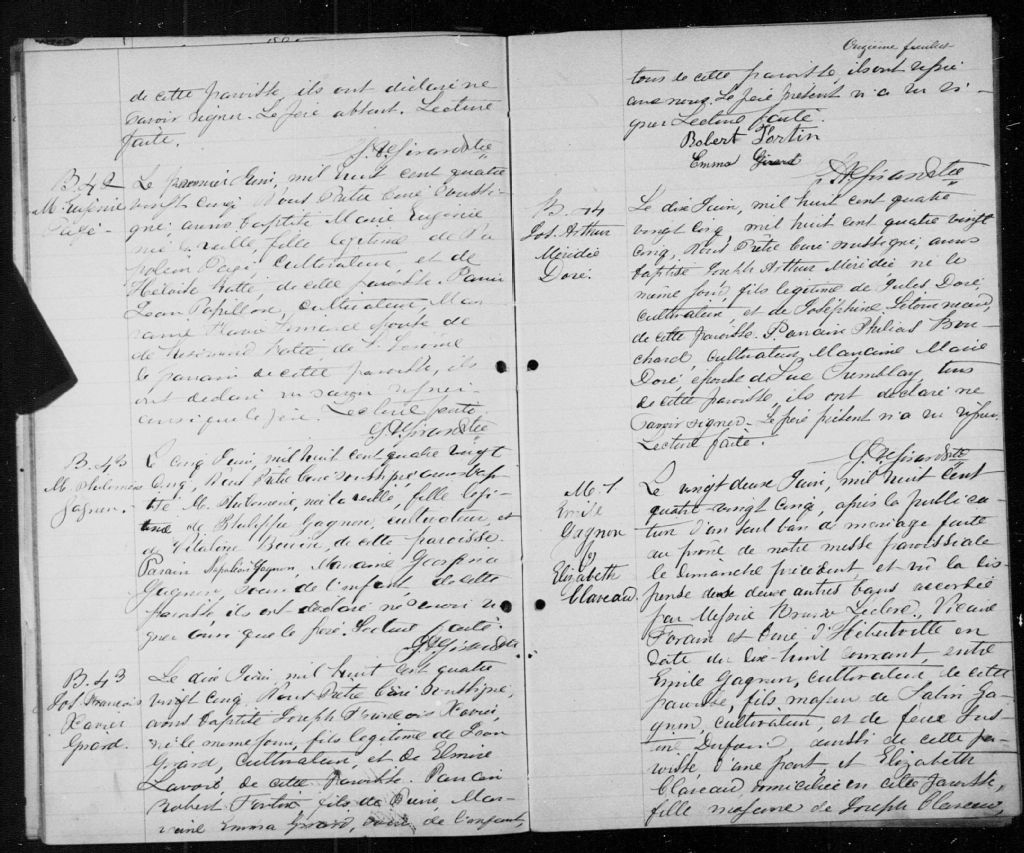 de cette paroisse, ils ont déclaré ne
savoir signer. Le père absent. Lecture
faite.
B. 42
M. Eugénie
Pagé.
Le premier Juin, mil huit cent quatre
vingt cinq, Nous Prêtre Curé soussi-
gné, avons baptisé Marie Eugénie
née la veille, fille légitime de Na
poléon Pagé, cultivateur, et de
de cette paroisse. Parrain
Léon Papillon, cultivateur, Mar-
raine épouse de
de de St Jérome
le parrain de cette paroisse, ils
ont déclaré ne savoir signer
ainsi que le père. Lecture faite
B. 43
M. Philomène
Gagnon.
Le cinq Juin, mil huit cent quatre vingt
cinq, Nous Prêtre Curé soussigné avons bap-
tisé M. Philomène, née la veille, fille légi-
time de Philippe Gagnon, cultivateur, et
de Vitaline Boivin, de cette paroisse.
Parain Napoléon Gagnon, Maraine Georgina
Gagnon, soeur de l'enfant, de cette
paroisse, ils ont déclaré ne savoir si-
gner ainsi que le père. Lecture faite.
B. 43
Jos. François
Xavier
Girard.
Le dix Juin, mil huit cent quatre
vingt cinq, Nous Prêtre Curé soussigné,
avons baptisé Joseph François Xavier,
né le meme jour, fils légitime de Jean
Girard, cultivateur, et de Elmire
Lavoie, de cette Paroisse. Parrain
Robert Fortin fils de Mar-
raine Emma Girard, soeur de l'enfant,
Onzième feuillet
tous de cette paroisse, ils ont signé
avec nous. Le père présent n'a su si-
gner Lecture faite.
Robert Fortin
Emma Girard
B. 44
Jos. Arthur
Méridée
Doré.
Le dix Juin, mil huit cent quatre
vingt cinq, mil huit cent quatre vingt
cinq, Nous Prêtre Curé soussigné, avons
baptisé Joseph Arthur Méridée né le
même jour, fils légitime de Jules Doré,
cultivateur, et de Joséphine Létourneau,
de cette paroisse. Parrain Philias Bou-
chard, cultivateur, Marraine Marie
Doré épouse de Luc Tremblay tous
de cette paroisse, ils ont déclaré ne
savoir signer. Le père présent n'a su signer.
Lecture faite.
M. 1
Emile
Gagnon
&
Elizabeth
Claveau.
Le vingt deux Juin, mil huit cent
quatre vingt cinq, après la publica-
tion d'un seul ban de mariage faite
au prône de notre messe paroissiale
le dimanche précédent et vu la dis-
pense de deux autres bans accordée
par Messire Bruno Leclerc, Vicaire
Forain et Curé d'Hébertville en
date du dix-huit courant, entre
Emile Gagnon, cultivateur de cette
paroisse, fils majeur de Ga-
gnon, cultivateur, et de feue Jus-
tine Dufour, aussi de cette pa-
roisse, d'une part et Elizabeth
Claveau domiciliée en cette paroisse,
fille majeure de Joseph Claveau,